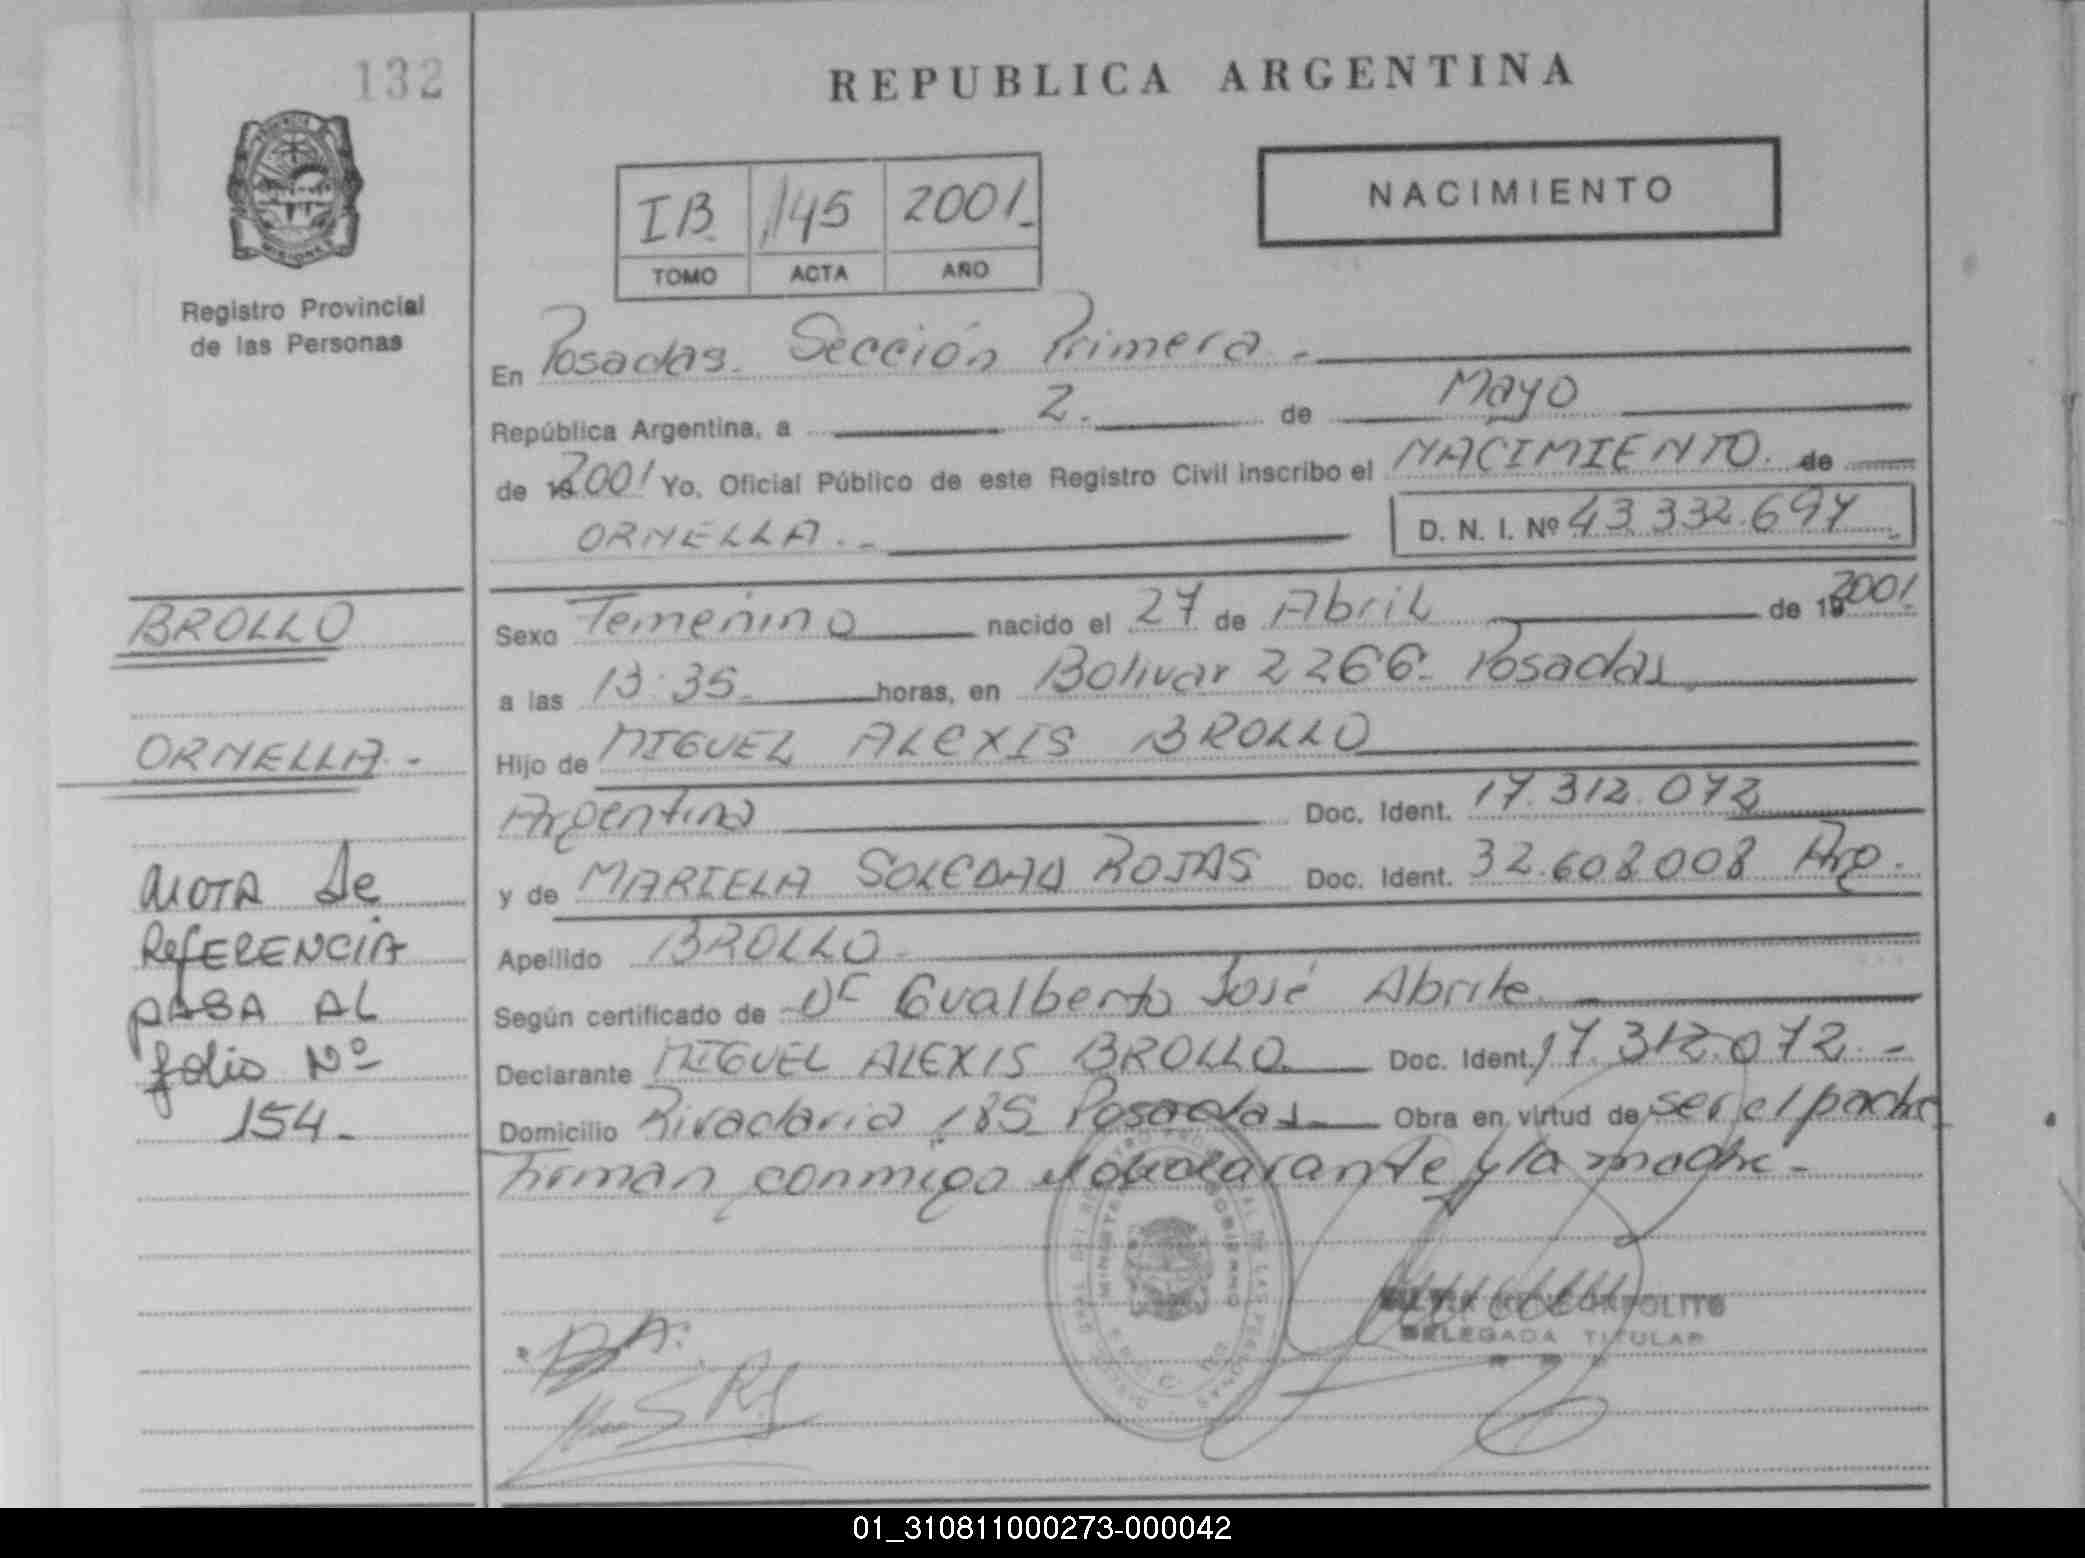 132
REPUBLICA ARGENTINA
NACIMIENTO
IB 145 2001
TOMO ACTA AÑO
Registro Provincial
de las Personas
En Posadas. Sección Primera.-
República Argentina, a 2. de Mayo
de 2001 Yo, Oficial Público de este Registro Civil inscribo el NACIMIENTO. de
ORNELLA.-
D. N. I. Nº 43.332.697
BROLLO
ORNELLA.-
NOTA de
REFERENCIA
PASA AL
folio Nº
154.-
Sexo Femenino nacido el 27 de Abril de 2001.
a las 13:35 horas, en Bolivar 2266. Posadas
Hijo de MIGUEL ALEXIS BROLLO
Argentina Doc. Ident. 17.312.072
y de MARIELA SOLEDAD ROJAS Doc. Ident. 32.608.008 Arg.
Apellido BROLLO
Según certificado de Dr Gualberto José Abrile.
Declarante MIGUEL ALEXIS BROLLO Doc. Ident. 17.312.072.-
Domicilio Rivadavia 185 Posadas Obra en virtud de ser el padre
Firman conmigo el declarante y la madre.-
DELEGADA TITULAR
01_310811000273-000042